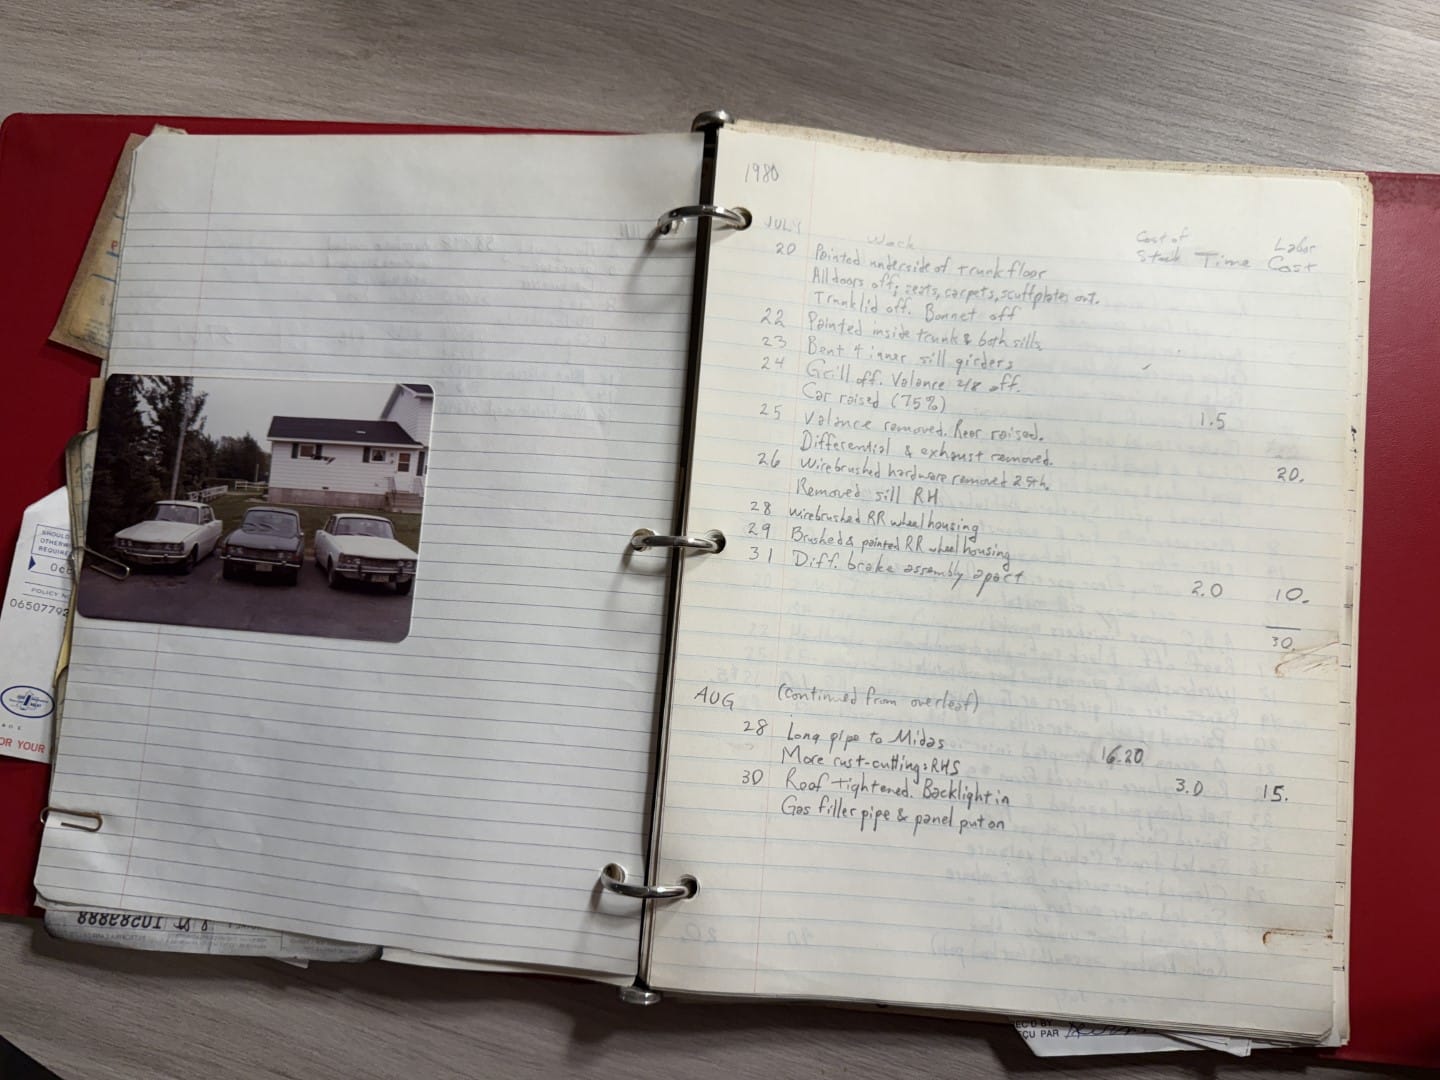 1980
JULY Work Cost of Stock Time Labor Cost
20 Painted underside of trunk floor
All doors off; seats, carpets, scuffplates out.
Trunklid off. Bonnet off
22 Painted inside trunk & both sills
23 Bent 4 inner sill girders
24 Grill off. Valance 2/8 off.
Car raised (75%) 1.5
25 Valance removed. Rear raised.
Differential & exhaust removed. 20.
26 Wirebrushed hardware removed 25th.
Removed sill RH
28 Wirebrushed RR wheelhousing
29 Brushed & painted RR wheelhousing
31 Diff. brake assembly apart 2.0 10.
30.
AUG (continued from overleaf)
28 Long pipe to Midas 16.20
More rust-cutting: RHS 3.0 15.
30 Roof tightened. Backlight in
Gas filler pipe & panel put on
SHOULD
OTHERW
REQUIRE
POLICY N
06507792
OR YOUR
EC'D BY
ÇU PAR